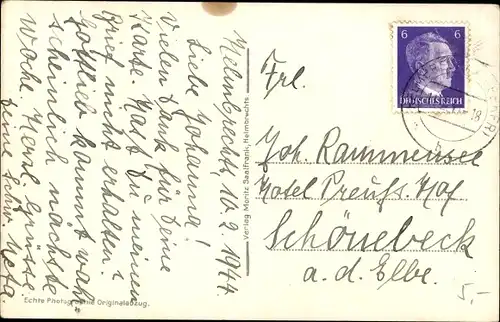 Helmbrechts, 10.2.1944.
Liebe Johanna!
Vielen Dank für Deine
Karte. Hast Du meinen
Brief nicht erhalten?
Gottlieb kommt wahr-
scheinlich nächste
Woche. Herzl. Grüsse
Deine Schw.
Verlag Moritz Seelfrank, Helmbrechts
Echte Photographie Originalabzug.
6 6
DEUTSCHES REICH
Frl.
Joh. Rammensee
Hotel Preuß. Hof
Schönebeck
a. d. Elbe.
5,-